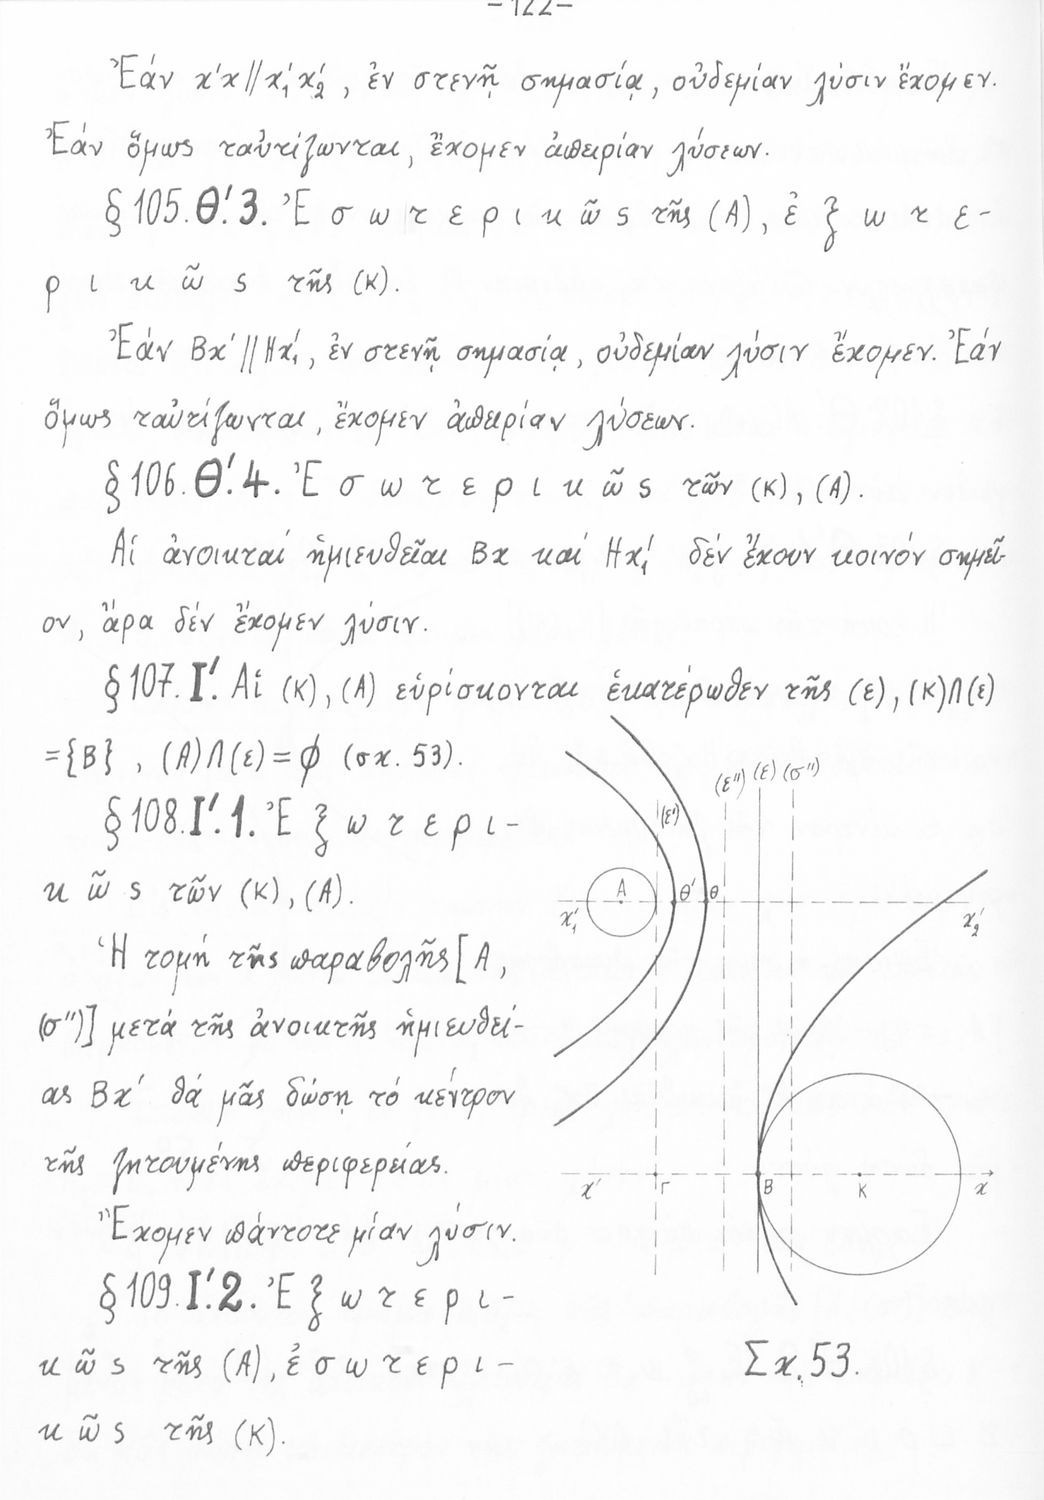 -122-
Ἐάν x'x // x₁'x₂', ἐν στενῇ σημασίᾳ, οὐδεμίαν λύσιν ἔχομεν.
Ἐάν ὅμως ταὐτίζωνται, ἔχομεν ἀπειρίαν λύσεων.
§105. Θ'. 3. Ἐσωτερικῶς τῆς (Α), ἐξωτε-
ρικῶς τῆς (Κ).
Ἐάν Βx' // Hx₁', ἐν στενῇ σημασίᾳ, οὐδεμίαν λύσιν ἔχομεν. Ἐάν
ὅμως ταὐτίζωνται, ἔχομεν ἀπειρίαν λύσεων.
§106. Θ'. 4. Ἐσωτερικῶς τῶν (Κ), (Α).
Αἱ ἀνοικταί ἡμιευθεῖαι Βx καί Hx₁' δέν ἔχουν κοινόν σημεῖ-
ον, ἄρα δέν ἔχομεν λύσιν.
§107. Ι'. Αἱ (Κ), (Α) εὑρίσκονται ἑκατέρωθεν τῆς (ε), (Κ)∩(ε)
={Β} , (Α)∩(ε)=ϕ (σχ. 53).
§108. Ι'. 1. Ἐξωτερι-
κῶς τῶν (Κ), (Α).
Ἡ τομή τῆς παραβολῆς [Α,
(σ'')] μετά τῆς ἀνοικτῆς ἡμιευθεί-
ας Βx' θά μᾶς δώσῃ τό κέντρον
τῆς ζητουμένης περιφερείας.
Ἔχομεν πάντοτε μίαν λύσιν.
§109. Ι'. 2. Ἐξωτερι-
κῶς τῆς (Α), ἐσωτερι-
κῶς τῆς (Κ).
(ε'') (ε) (σ'')
(ε')
Α θ' θ
x₁' x₂'
x' Γ Β Κ x
Σχ. 53.